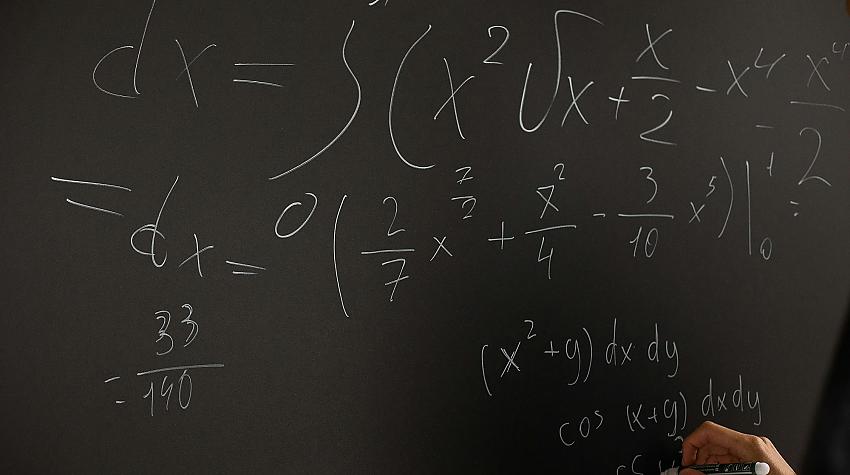 dx = ∫₀ (x² √x + x/2 - x⁴ - x⁴/2
= dx = (2/7 x^(7/2) + x²/4 - 3/10 x⁵)|₀¹ =
= 33/140
(x² + y) dx dy
cos (x+y) dx dy